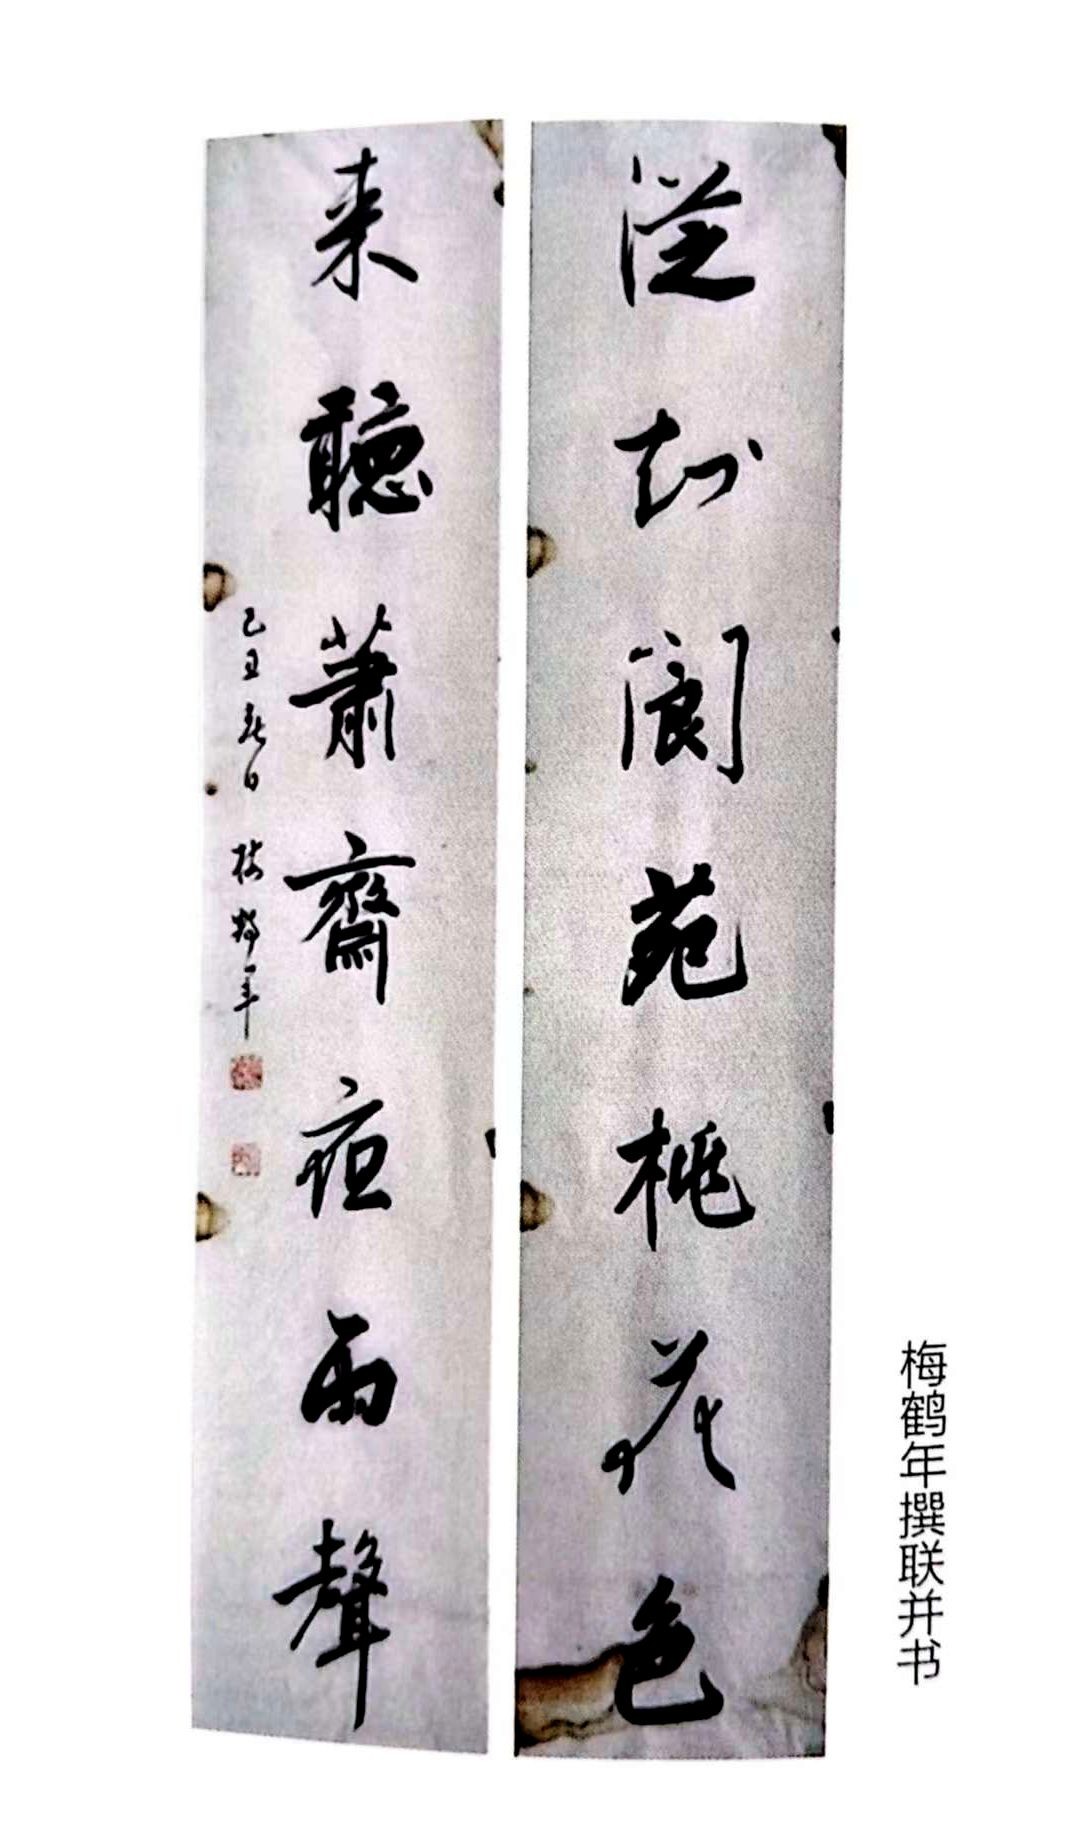 從閬苑桃花色
来聽蕭齋雨聲
丑春日 梅鶴年
梅鹤年撰联并书